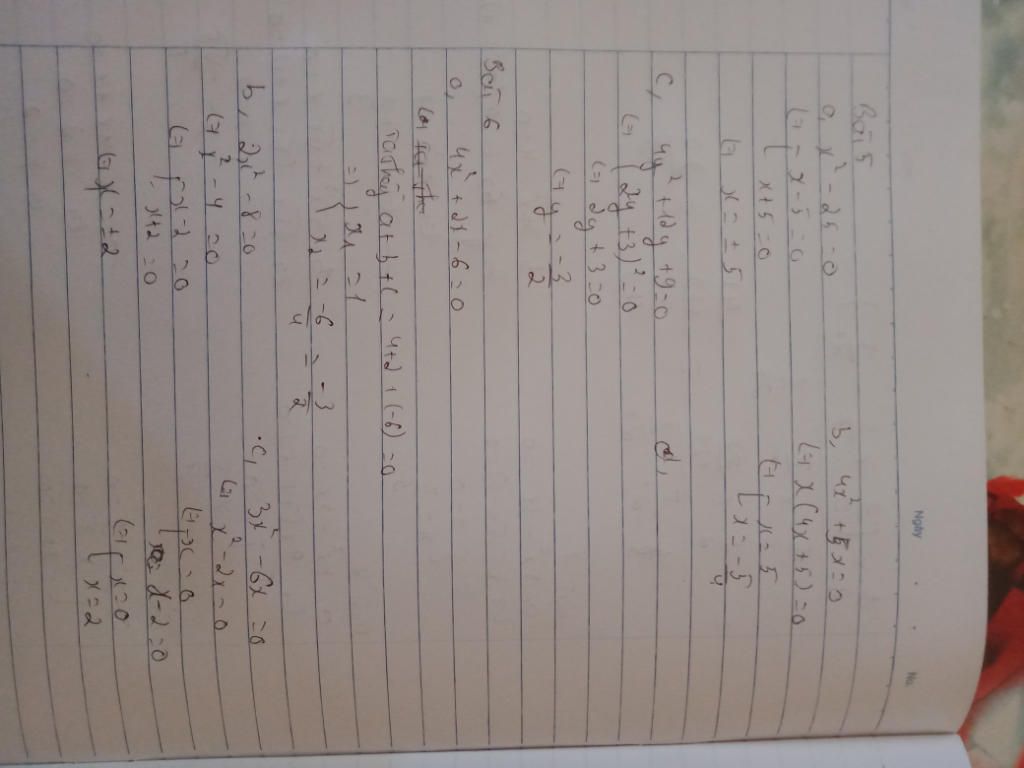 Ngày
No
Bài 5
a, x² - 25 = 0
⇔ [ x - 5 = 0
x + 5 = 0
⇔ x = ± 5
b, 4x² + 5x = 0
⇔ x(4x + 5) = 0
⇔ [ x = 5
x = -5/4
c, 4y² + 12y + 9 = 0
⇔ (2y + 3)² = 0
⇔ 2y + 3 = 0
⇔ y = -3/2
d,
Bài 6
a, 4x² + 2x - 6 = 0
Ta thấy a + b + c = 4 + 2 + (-6) = 0
⇒ { x₁ = 1
x₂ = -6/4 = -3/2
b, 2x² - 8 = 0
⇔ x² - 4 = 0
⇔ [ x - 2 = 0
x + 2 = 0
⇔ x = ± 2
c, 3x² - 6x = 0
⇔ x² - 2x = 0
⇔ [ x = 0
x - 2 = 0
⇔ [ x = 0
x = 2